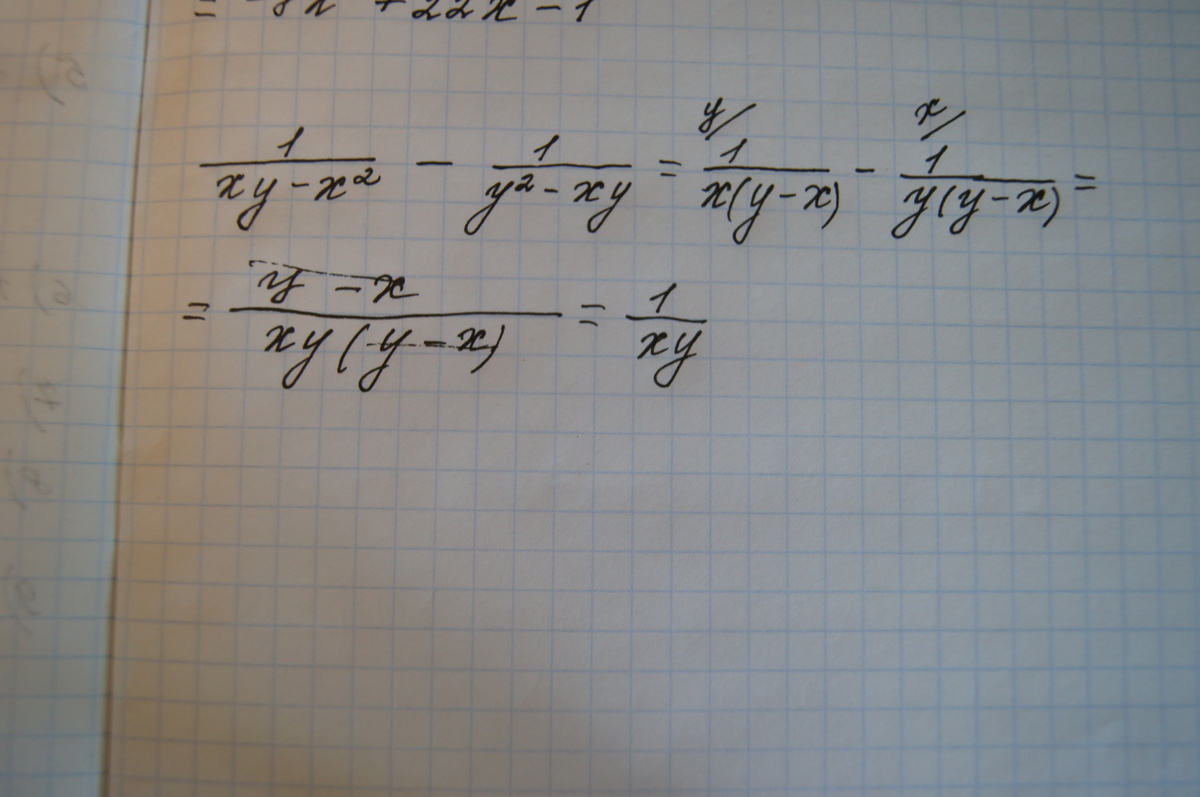 = -8x + 22x - 1
1/(xy - x²) - 1/(y² - xy) = y/ 1/(x(y - x)) - x/ 1/(y(y - x)) =
= (y - x)/(xy(y - x)) = 1/(xy)